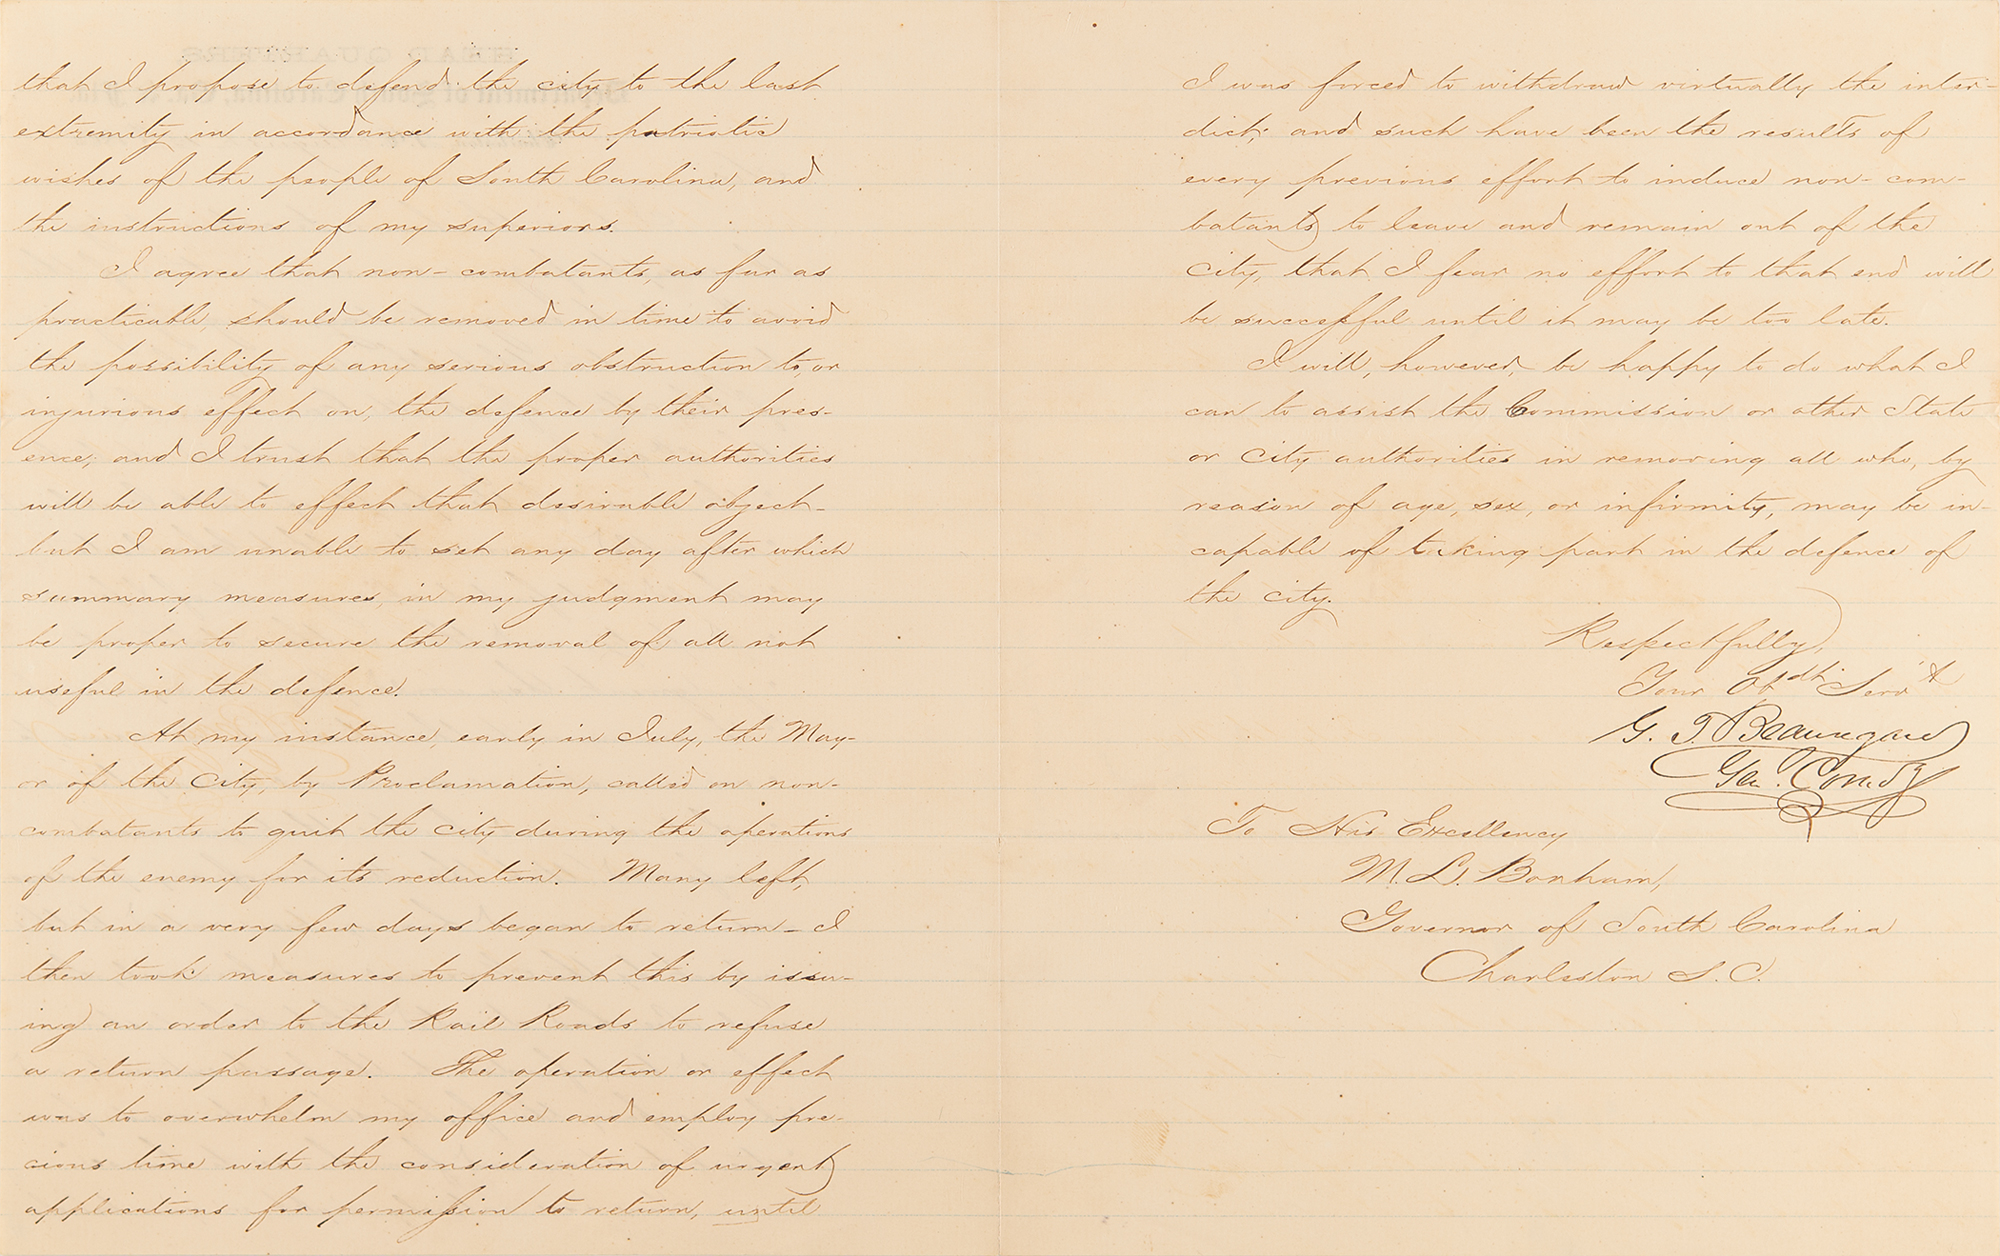 that I propose to defend the city to the last
extremity in accordance with the patriotic
wishes of the people of South Carolina, and
the instructions of my superiors.
I agree that non-combatants, as far as
practicable, should be removed in time to avoid
the possibility of any serious obstruction to, or
injurious effect on, the defence by their pres-
ence; and I trust that the proper authorities
will be able to effect that desirable object-
but I am unable to set any day after which
summary measures, in my judgment may
be proper to secure the removal of all not
useful in the defence.
At my instance, early in July, the May-
or of the City, by Proclamation, called on non-
combatants to quit the city during the operations
of the enemy for its reduction. Many left,
but in a very few days began to return- I
then took measures to prevent this by issu-
ing an order to the Rail Roads to refuse
a return passage. The operation or effect
was to overwhelm my office and employ pre-
cious time with the consideration of urgent
applications for permission to return, until
I was forced to withdraw virtually the inter-
dict; and such have been the results of
every previous effort to induce non-com-
batants to leave and remain out of the
city, that I fear no effort to that end will
be successful until it may be too late.
I will, however, be happy to do what I
can to assist the Commission or other State
or City authorities in removing all who, by
reason of age, sex, or infirmity, may be in-
capable of taking part in the defence of
the city.
Respectfully,
Your Obdt Servt
G. T. Beauregard
Genl. Comdg
To His Excellency
M. L. Bonham,
Governor of South Carolina
Charleston S. C.